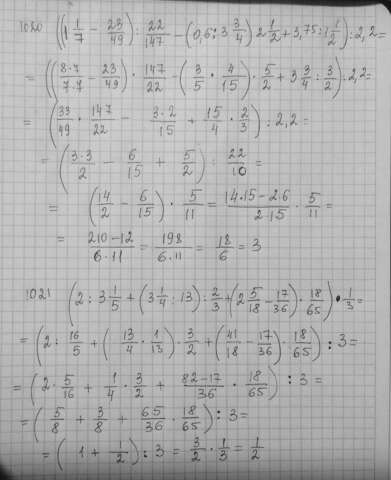 1020 ((1 1/7 − 23/49) : 22/147 − (0,6 : 3 3/4) · 2 1/2 + 3,75 : 1 1/2) : 2,2 =
= ((8·7/7·7 − 23/49) · 147/22 − (3/5 · 4/15) · 5/2 + 3 3/4 : 3/2) : 2,2 =
= (33/49 · 147/22 − 3·2/15 + 15/4 · 2/3) : 2,2 =
= (3·3/2 − 6/15 + 5/2) : 22/10 =
= (14/2 − 6/15) · 5/11 = 14·15−2·6/2·15 · 5/11 =
= 210−12/6·11 = 198/6·11 = 18/6 = 3
1021 (2 : 3 1/5 + (3 1/4 : 13) : 2/3 + (2 5/18 − 17/36) · 18/65) · 1/3 =
= (2 : 16/5 + (13/4 · 1/13) · 3/2 + (41/18 − 17/36) · 18/65) : 3 =
= (2 · 5/16 + 1/4 · 3/2 + 82−17/36 · 18/65) : 3 =
= (5/8 + 3/8 + 65/36 · 18/65) : 3 =
= (1 + 1/2) : 3 = 3/2 · 1/3 = 1/2